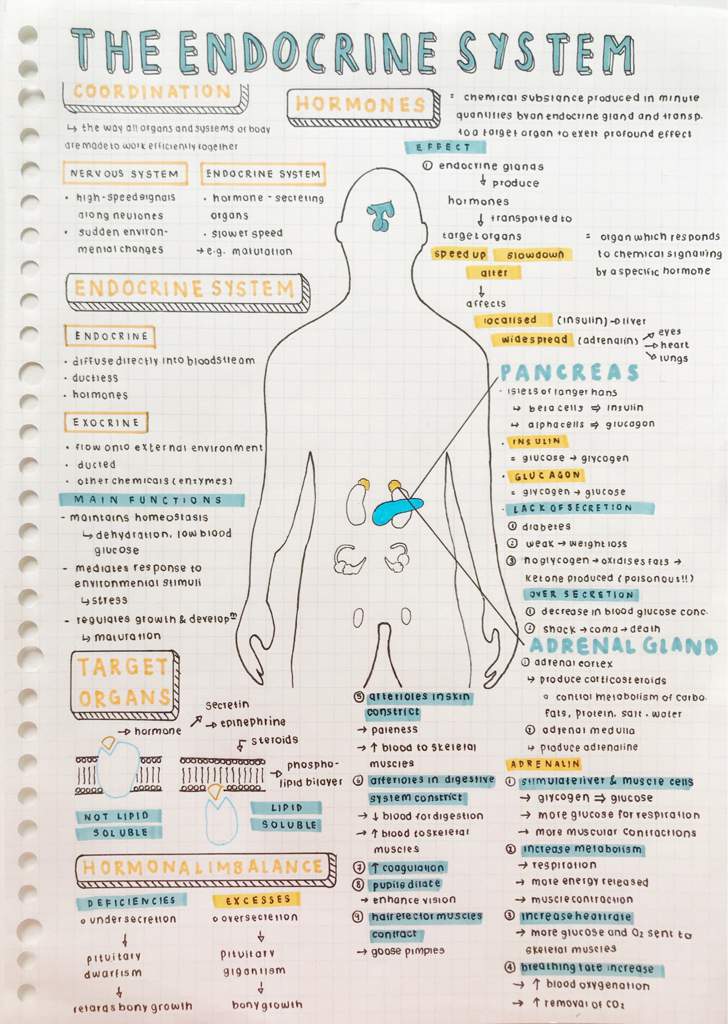 THE ENDOCRINE SYSTEM
COORDINATION
↳ the way all organs and systems of body
are made to work efficiently together
NERVOUS SYSTEM
• high-speed signals
along neurones
• sudden environ-
mental changes
ENDOCRINE SYSTEM
• hormone-secreting
organs
• slower speed
→ e.g. maturation
ENDOCRINE SYSTEM
ENDOCRINE
• diffuse directly into bloodstream
• ductless
• hormones
EXOCRINE
• flow onto external environment
• ducted
• other chemicals (enzymes)
MAIN FUNCTIONS
- maintains homeostasis
↳ dehydration, low blood
glucose
- mediates response to
environmental stimuli
↳ stress
- regulates growth & developᵐ
↳ maturation
TARGET
ORGANS
→ hormone
secretin
→ epinephrine
steroids
→ phospho-
lipid bilayer
NOT LIPID
SOLUBLE
LIPID
SOLUBLE
HORMONAL IMBALANCE
DEFICIENCIES
o undersecretion
↓
pituitary
dwarfism
↓
retards bony growth
EXCESSES
o oversecretion
↓
pituitary
gigantism
↓
bony growth
HORMONES
= chemical substance produced in minute
quantities by an endocrine gland and transp.
to a target organ to exert profound effect
EFFECT
① endocrine glands
↓ produce
hormones
↓ transported to
target organs
= organ which responds
to chemical signaling
by a specific hormone
speed up slowdown
alter
↓
affects
localised (insulin) → liver
widespread (adrenalin) eyes
→ heart
lungs
PANCREAS
• islets of langerhans
↳ beta cells ⇒ insulin
↳ alpha cells ⇒ glucagon
• INSULIN
= glucose → glycogen
• GLUCAGON
= glycogen → glucose
LACK OF SECRETION
① diabetes
② weak → weight loss
③ no glycogen → oxidises fats →
ketone produced (poisonous!!)
OVER SECRETION
① decrease in blood glucose conc.
② shock → coma → death
ADRENAL GLAND
① adrenal cortex
↳ produce corticosteroids
o control metabolism of carbo.
fats, protein, salt, water
② adrenal medulla
↳ produce adrenaline
ADRENALIN
① stimulate liver & muscle cells
→ glycogen ⇒ glucose
→ more glucose for respiration
→ more muscular contractions
② increase metabolism
→ respiration
→ more energy released
→ muscle contraction
③ increase heart rate
→ more glucose and O₂ sent to
skeletal muscles
④ breathing rate increase
→ ↑ blood oxygenation
→ ↑ removal of CO₂
⑤ arterioles in skin
constrict
→ paleness
→ ↑ blood to skeletal
muscles
⑥ arterioles in digestive
system constrict
→ ↓ blood for digestion
→ ↑ blood to skeletal
muscles
⑦ ↑ coagulation
⑧ pupils dilate
→ enhance vision
⑨ hair elector muscles
contract
→ goose pimples